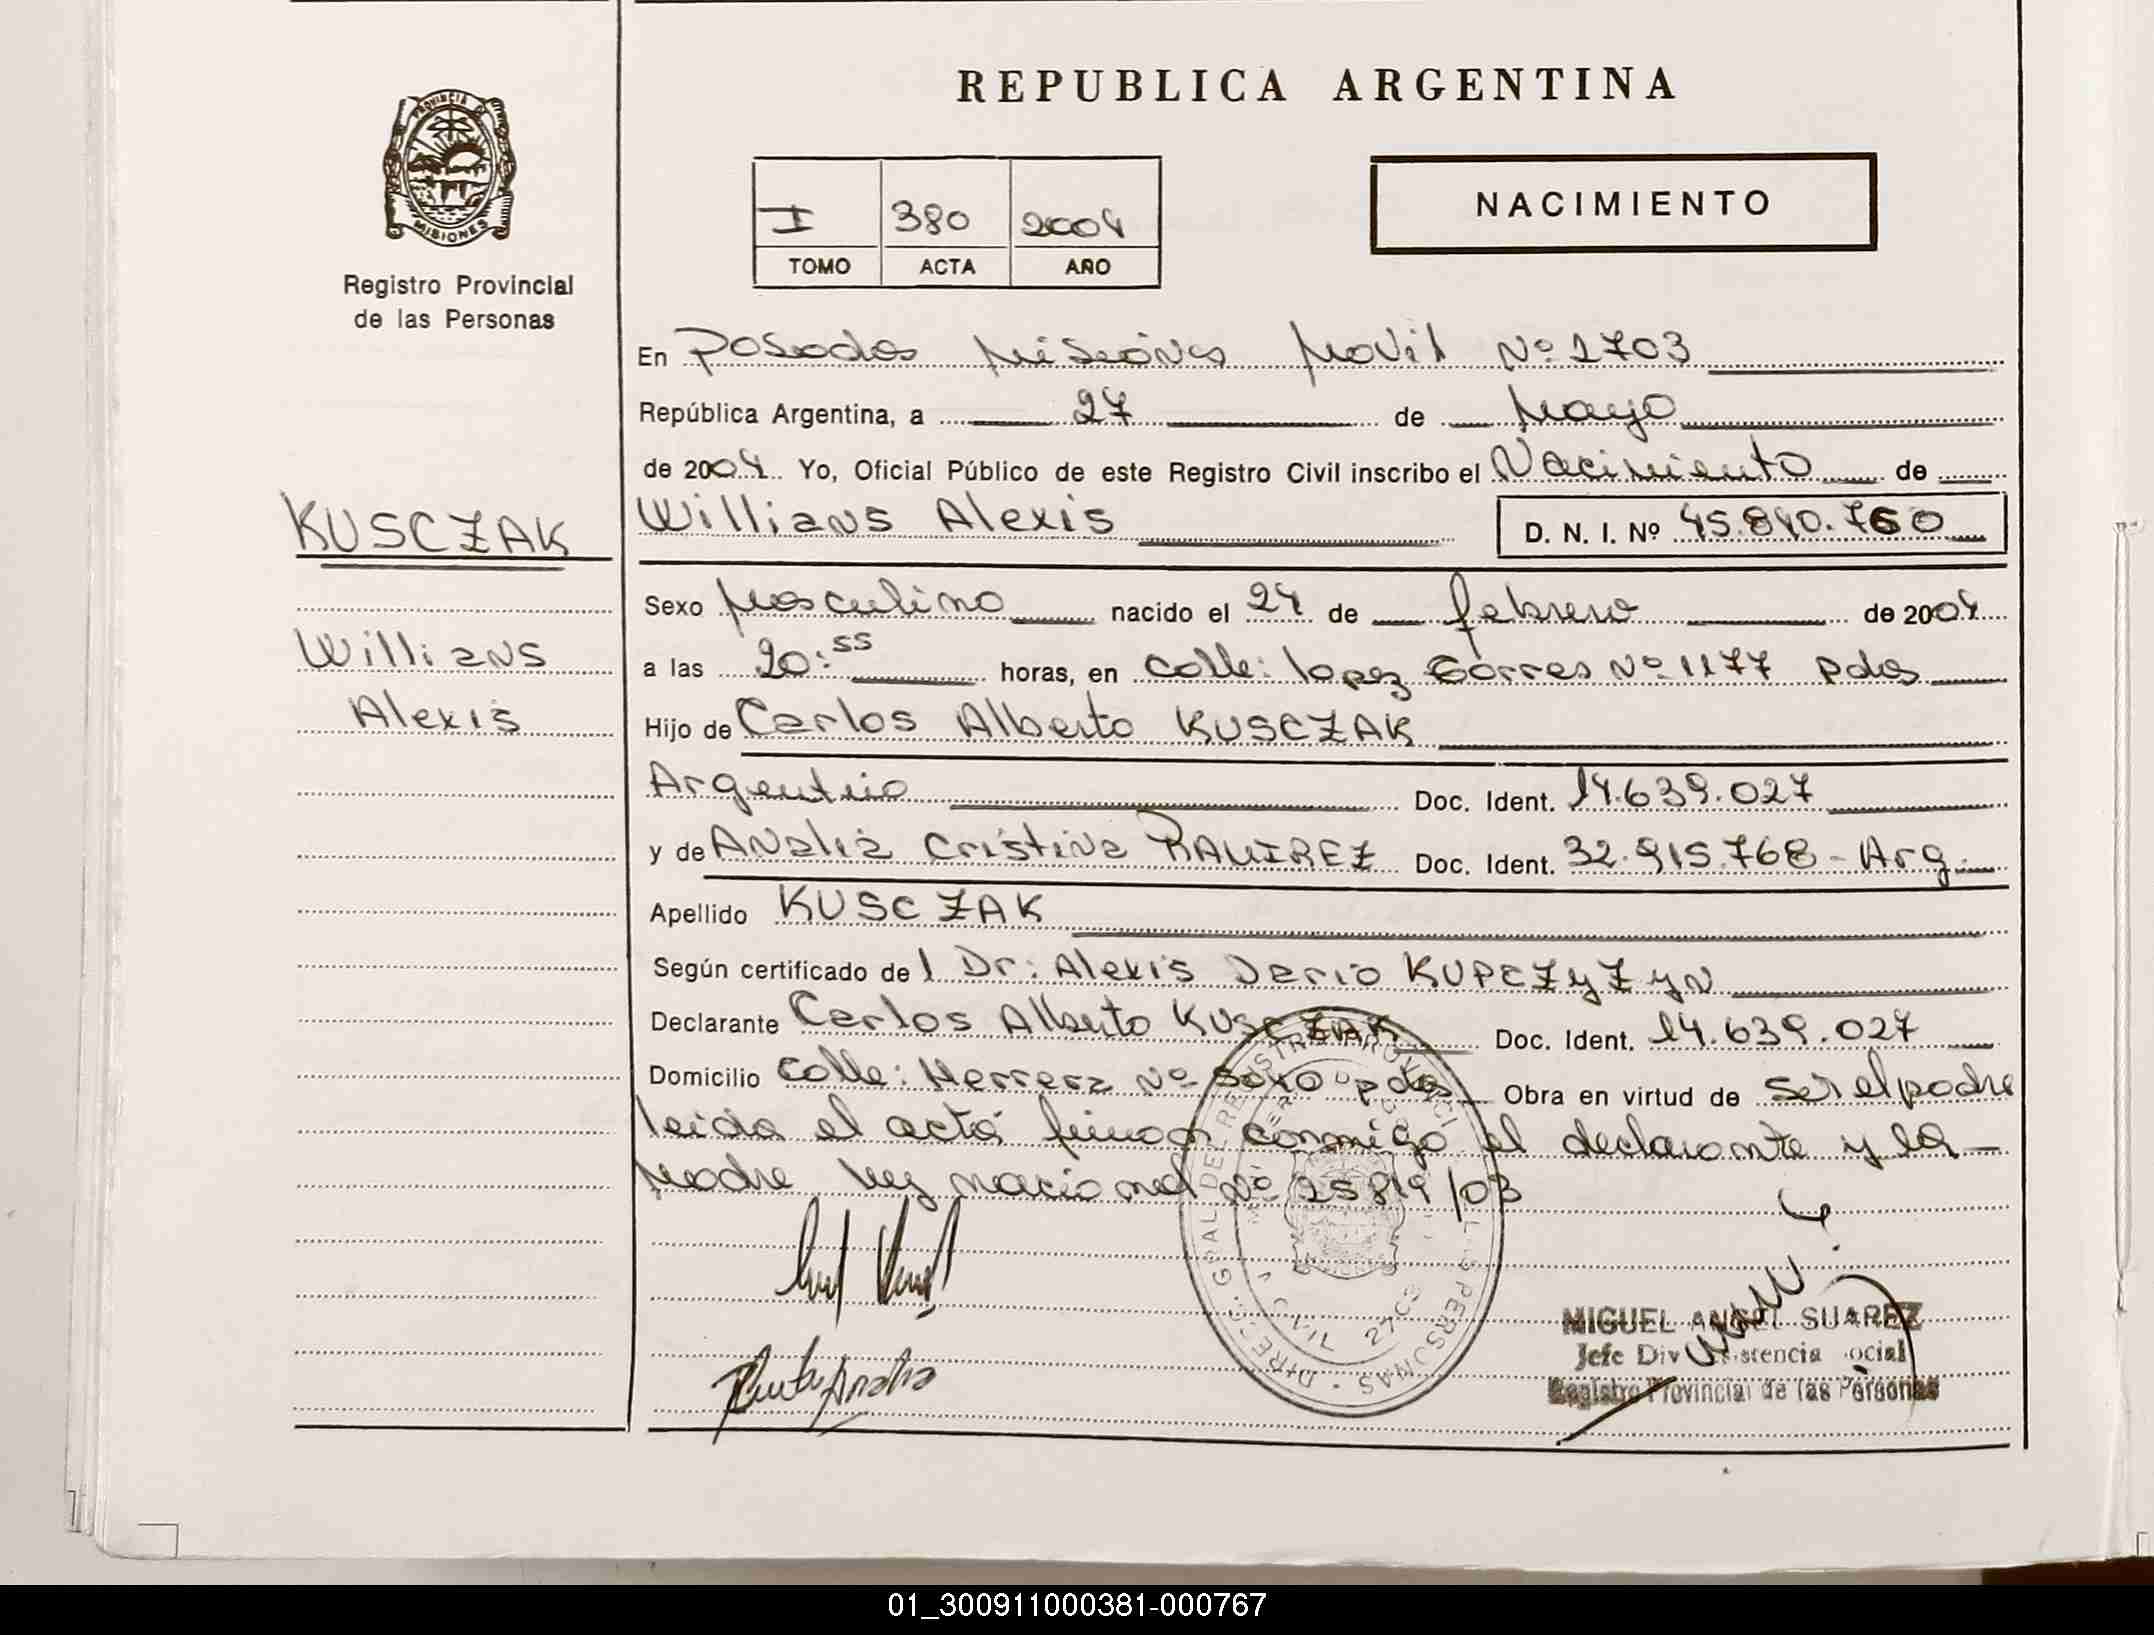 REPUBLICA ARGENTINA
PROVINCIA DE
MISIONES
Registro Provincial
de las Personas
I 380 2004
TOMO ACTA AÑO
NACIMIENTO
En Posadas Misiones Movil Nº 2703
República Argentina, a 27 de Mayo
de 2004 Yo, Oficial Público de este Registro Civil inscribo el Nacimiento de
KUSCZAK
Willians Alexis D. N. I. Nº 45.840.760
Sexo Masculino nacido el 24 de febrero de 2004
Willians
Alexis
a las 20:55 horas, en calle: lopez torres Nº 1177 pdas
Hijo de Carlos Alberto KUSCZAK
Argentino Doc. Ident. 14.639.027
y de Analia Cristina RAMIREZ Doc. Ident. 32.915.768 - Arg.
Apellido KUSCZAK
Según certificado del Dr: Alexis Dario KUPCZyZyN
Declarante Carlos Alberto KUSCZAK Doc. Ident. 14.639.027
Domicilio calle: Herrera Nº pdas Obra en virtud de ser el padre
leida el acta firman conmigo el declarante y la
Madre ley nacional Nº 25819/03
MIGUEL ANGEL SUAREZ
Jefe Div
Registro Provincial de las Personas
01_300911000381-000767